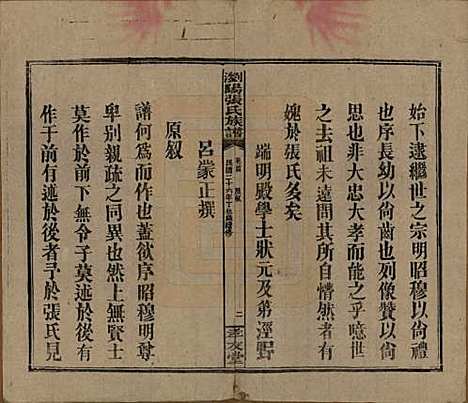 始下逮繼世之宗明昭穆以尚禮
也序長幼以尚齒也列像贊以尚
親也非大忠大孝而能之乎噫世
之去祖未遠問其所自懵然者有
媿於張氏多矣
端明殿學士狀元及第涇野
呂蒙正撰
瀏陽張氏族譜
卷首
原叙
民國二十六年丁丑
二
孝友堂
原叙
譜何爲而作也蓋欲序昭穆明尊
卑別親疏之同異也然上無賢士
莫作於前下無令子莫述於後有
作于前有述於後者予於張氏見